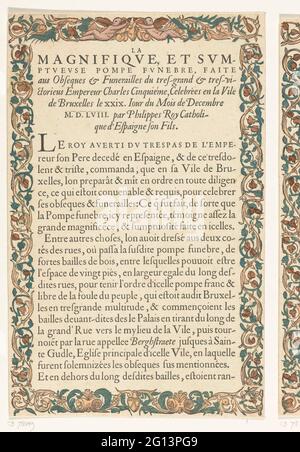 LA
MAGNIFIQVE, ET SVM-
PTVEVSE POMPE FVNEBRE, FAITE
aux Obseques & Funerailles du tresgrand & tresvi-
ctorieus Empereur Charles Cinquiéme, Celebrées en la Vile
de Bruxelles le XXIX. Iour du Mois de Decembre
M. D. LVIII. par Philippes Roy Catholi-
que d'Espaigne son Fils.
LE ROY AVERTI DV TRESPAS DE L'EMPE-
reur son Pere decedé en Espaigne, & de ce tresdo-
lent & triste, commanda, que en sa Vile de Bruxel-
les, lon preparât & mit en ordre en toute diligen-
ce, ce qui estoit conuenable & requis, pour celebrer
ses obseques & funerailles: Ce qui fut fait, de sorte que
la Pompe funebre, icy representée, témoigne assez la
grande magnificence, & sumptuosité faite en icelles.
Entre autres choses, lon auoit dressé aux deux co-
stés des rues, où passa la susdite pompe funebre, de
fortes bailles de bois, entre lesquelles pouuoit estre
l'espace de vingt piés, en largeur egale du long des-
dites rues, pour tenir l'ordre d'icelle pompe franc &
libre de la foule du peuple, qui estoit audit Bruxel-
les en tresgrande multitude, & commençoient les
bailles deuant-dites des le Palais en tirant du long de
la grand' Rue vers le mylieu de la Vile, puis tour-
noiét par la rue appellée Berghstraete jusques à Sain-
te Gudle, Eglise principale d'icelle Vile, en laquelle
furent solennizées les obseques sus mentionnées.
Et en dehors du long desdites bailles, estoient ran-
2G13PG9